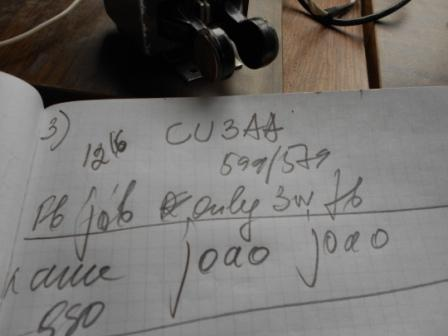 3)
1216 CU3AA
599/579
fb job only 3w fb
name joao joao
599